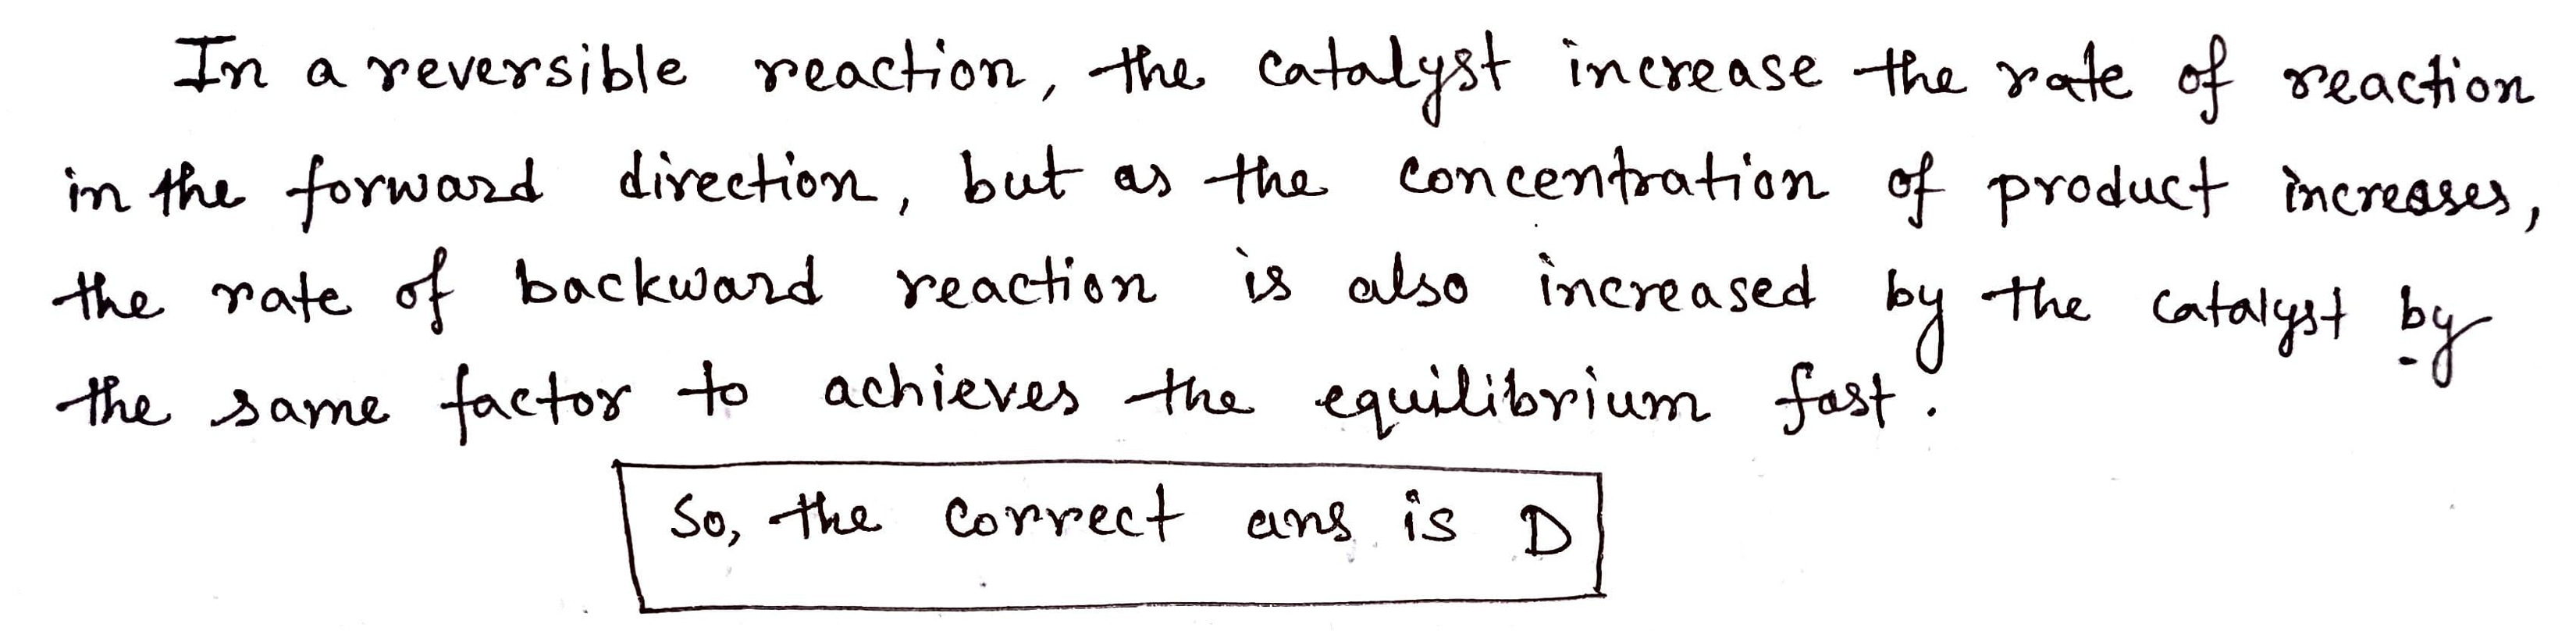 In a reversible reaction, the catalyst increase the rate of reaction
in the forward direction, but as the concentration of product increases,
the rate of backward reaction is also increased by the catalyst by
the same factor to achieves the equilibrium fast.
So, the correct ans is D